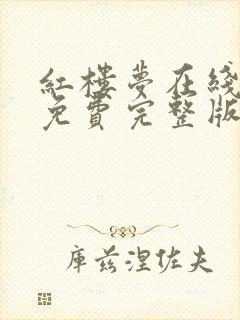 红樓夢在綫
免費完整版
庫兹涅佐夫